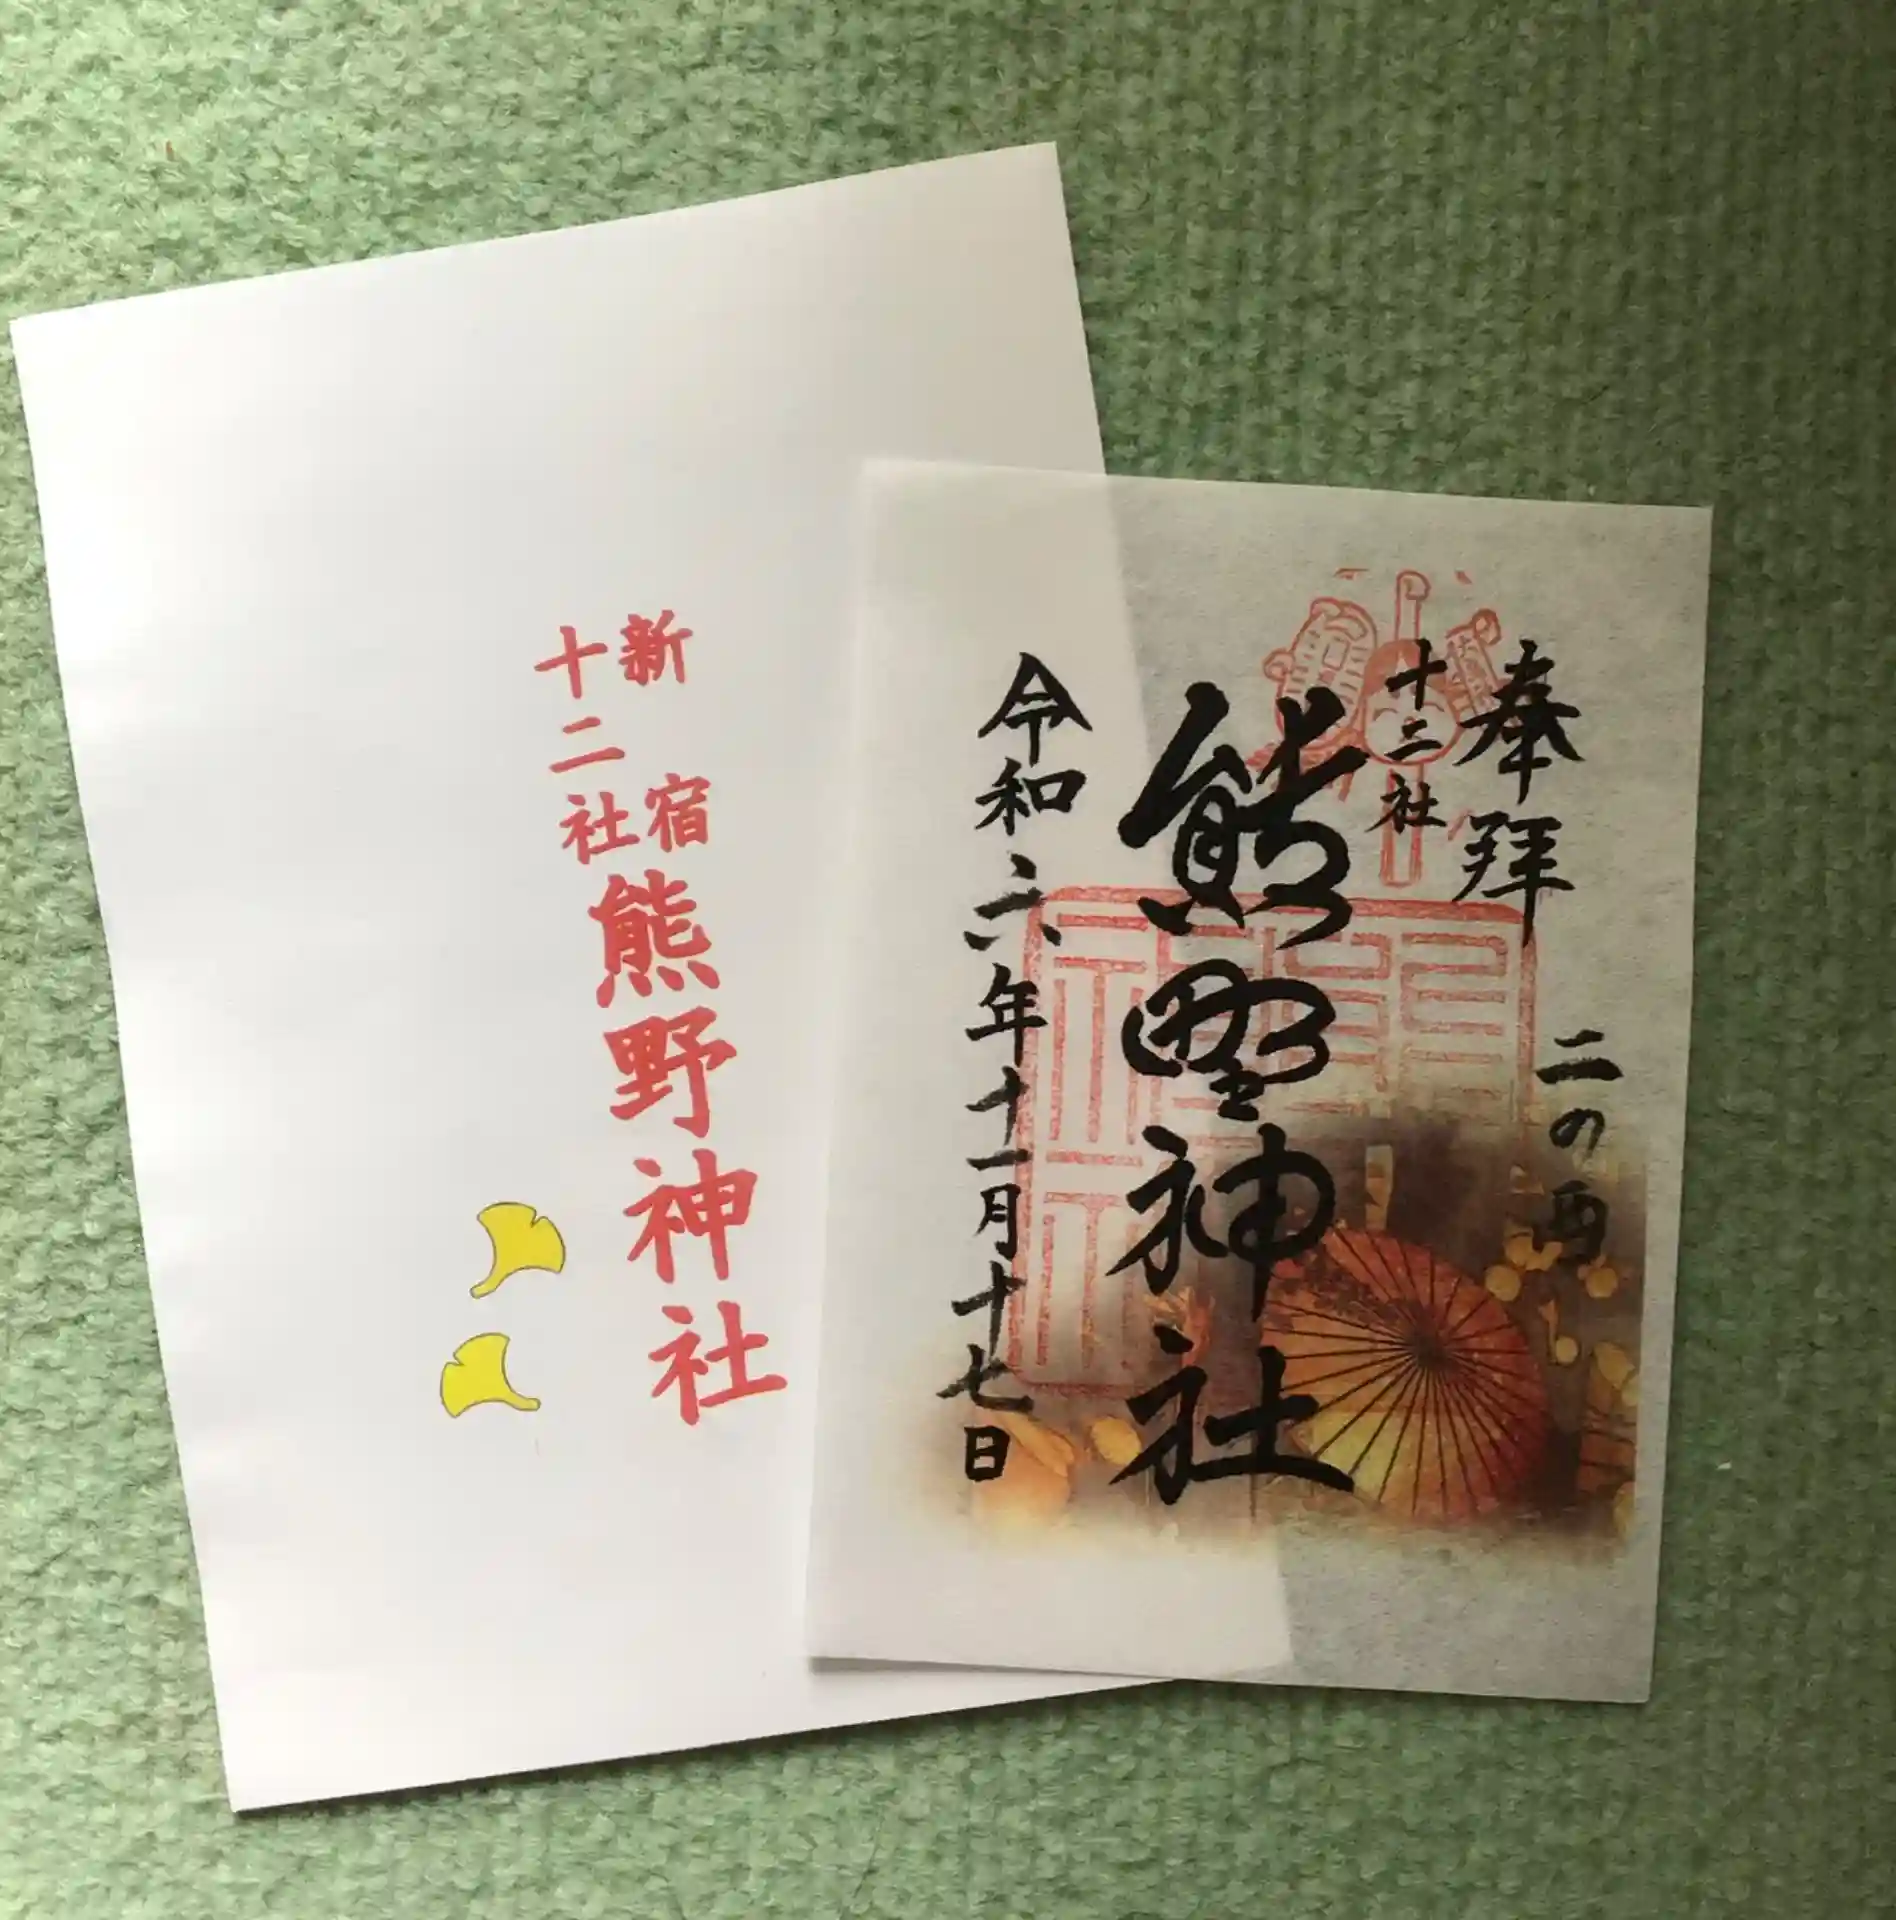 新宿
十二社
熊野神社
奉拝
二の酉
十二社
熊野神社
令和六年十一月十七日